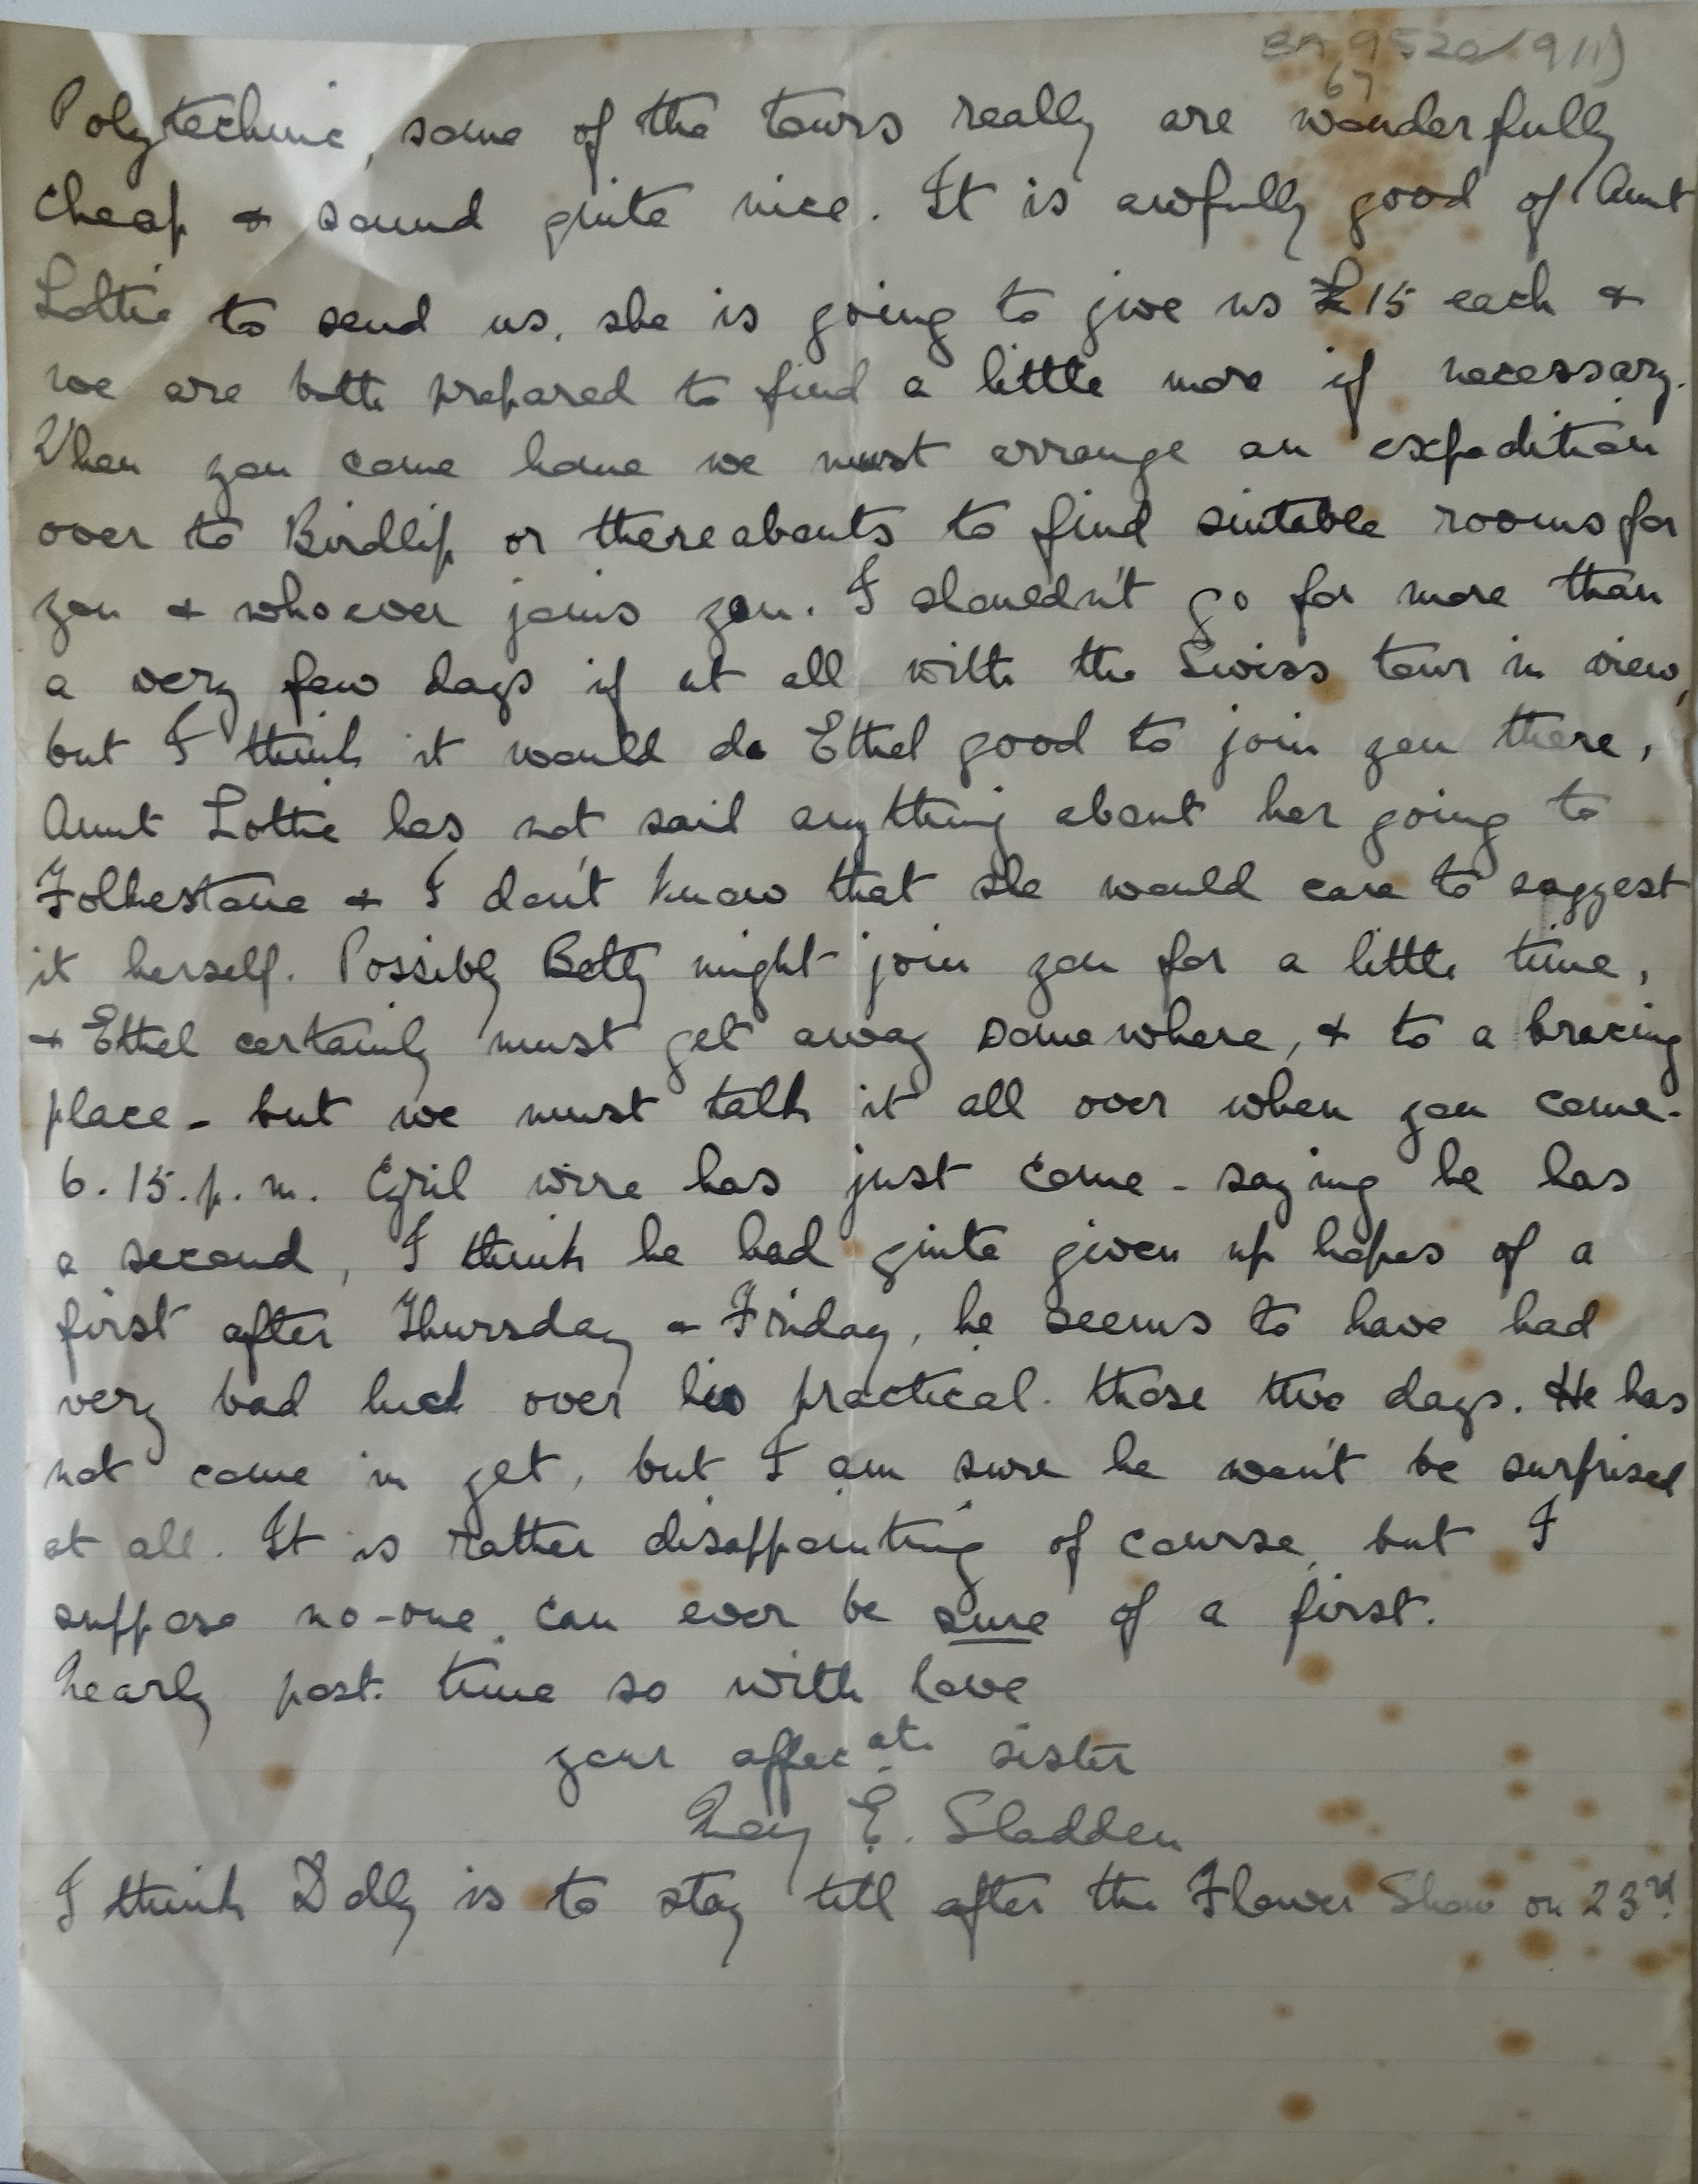 BA 9520/9(1)
67
Polytechnic, some of the tours really are wonderfully
cheap & sound quite nice. It is awfully good of Aunt
Lottie to send us, she is going to give us £15 each &
we are both prepared to find a little more if necessary.
When you come home we must arrange an expedition
over to Birdlip or thereabouts to find suitable rooms for
you & whoever joins you. I shouldn't go for more than
a very few days if at all with the Swiss tour in view,
but I think it would do Ethel good to join you there,
Aunt Lottie has not said anything about her going to
Folkestone & I don't know that she would care to suggest
it herself. Possibly Betty might join you for a little time,
& Ethel certainly must get away somewhere, & to a bracing
place - but we must talk it all over when you come.
6.15.p.m. Cyril wire has just come - saying he has
a second, I think he had quite given up hopes of a
first after Thursday & Friday, he seems to have had
very bad luck over his practical those two days. He has
not come in yet, but I am sure he won't be surprised
at all. It is rather disappointing of course, but I
suppose no-one can ever be sure of a first.
Nearly post time so with love
your affecate sister
May E. Sladden
I think Dolly is to stay till after the Flower Show on 23rd.